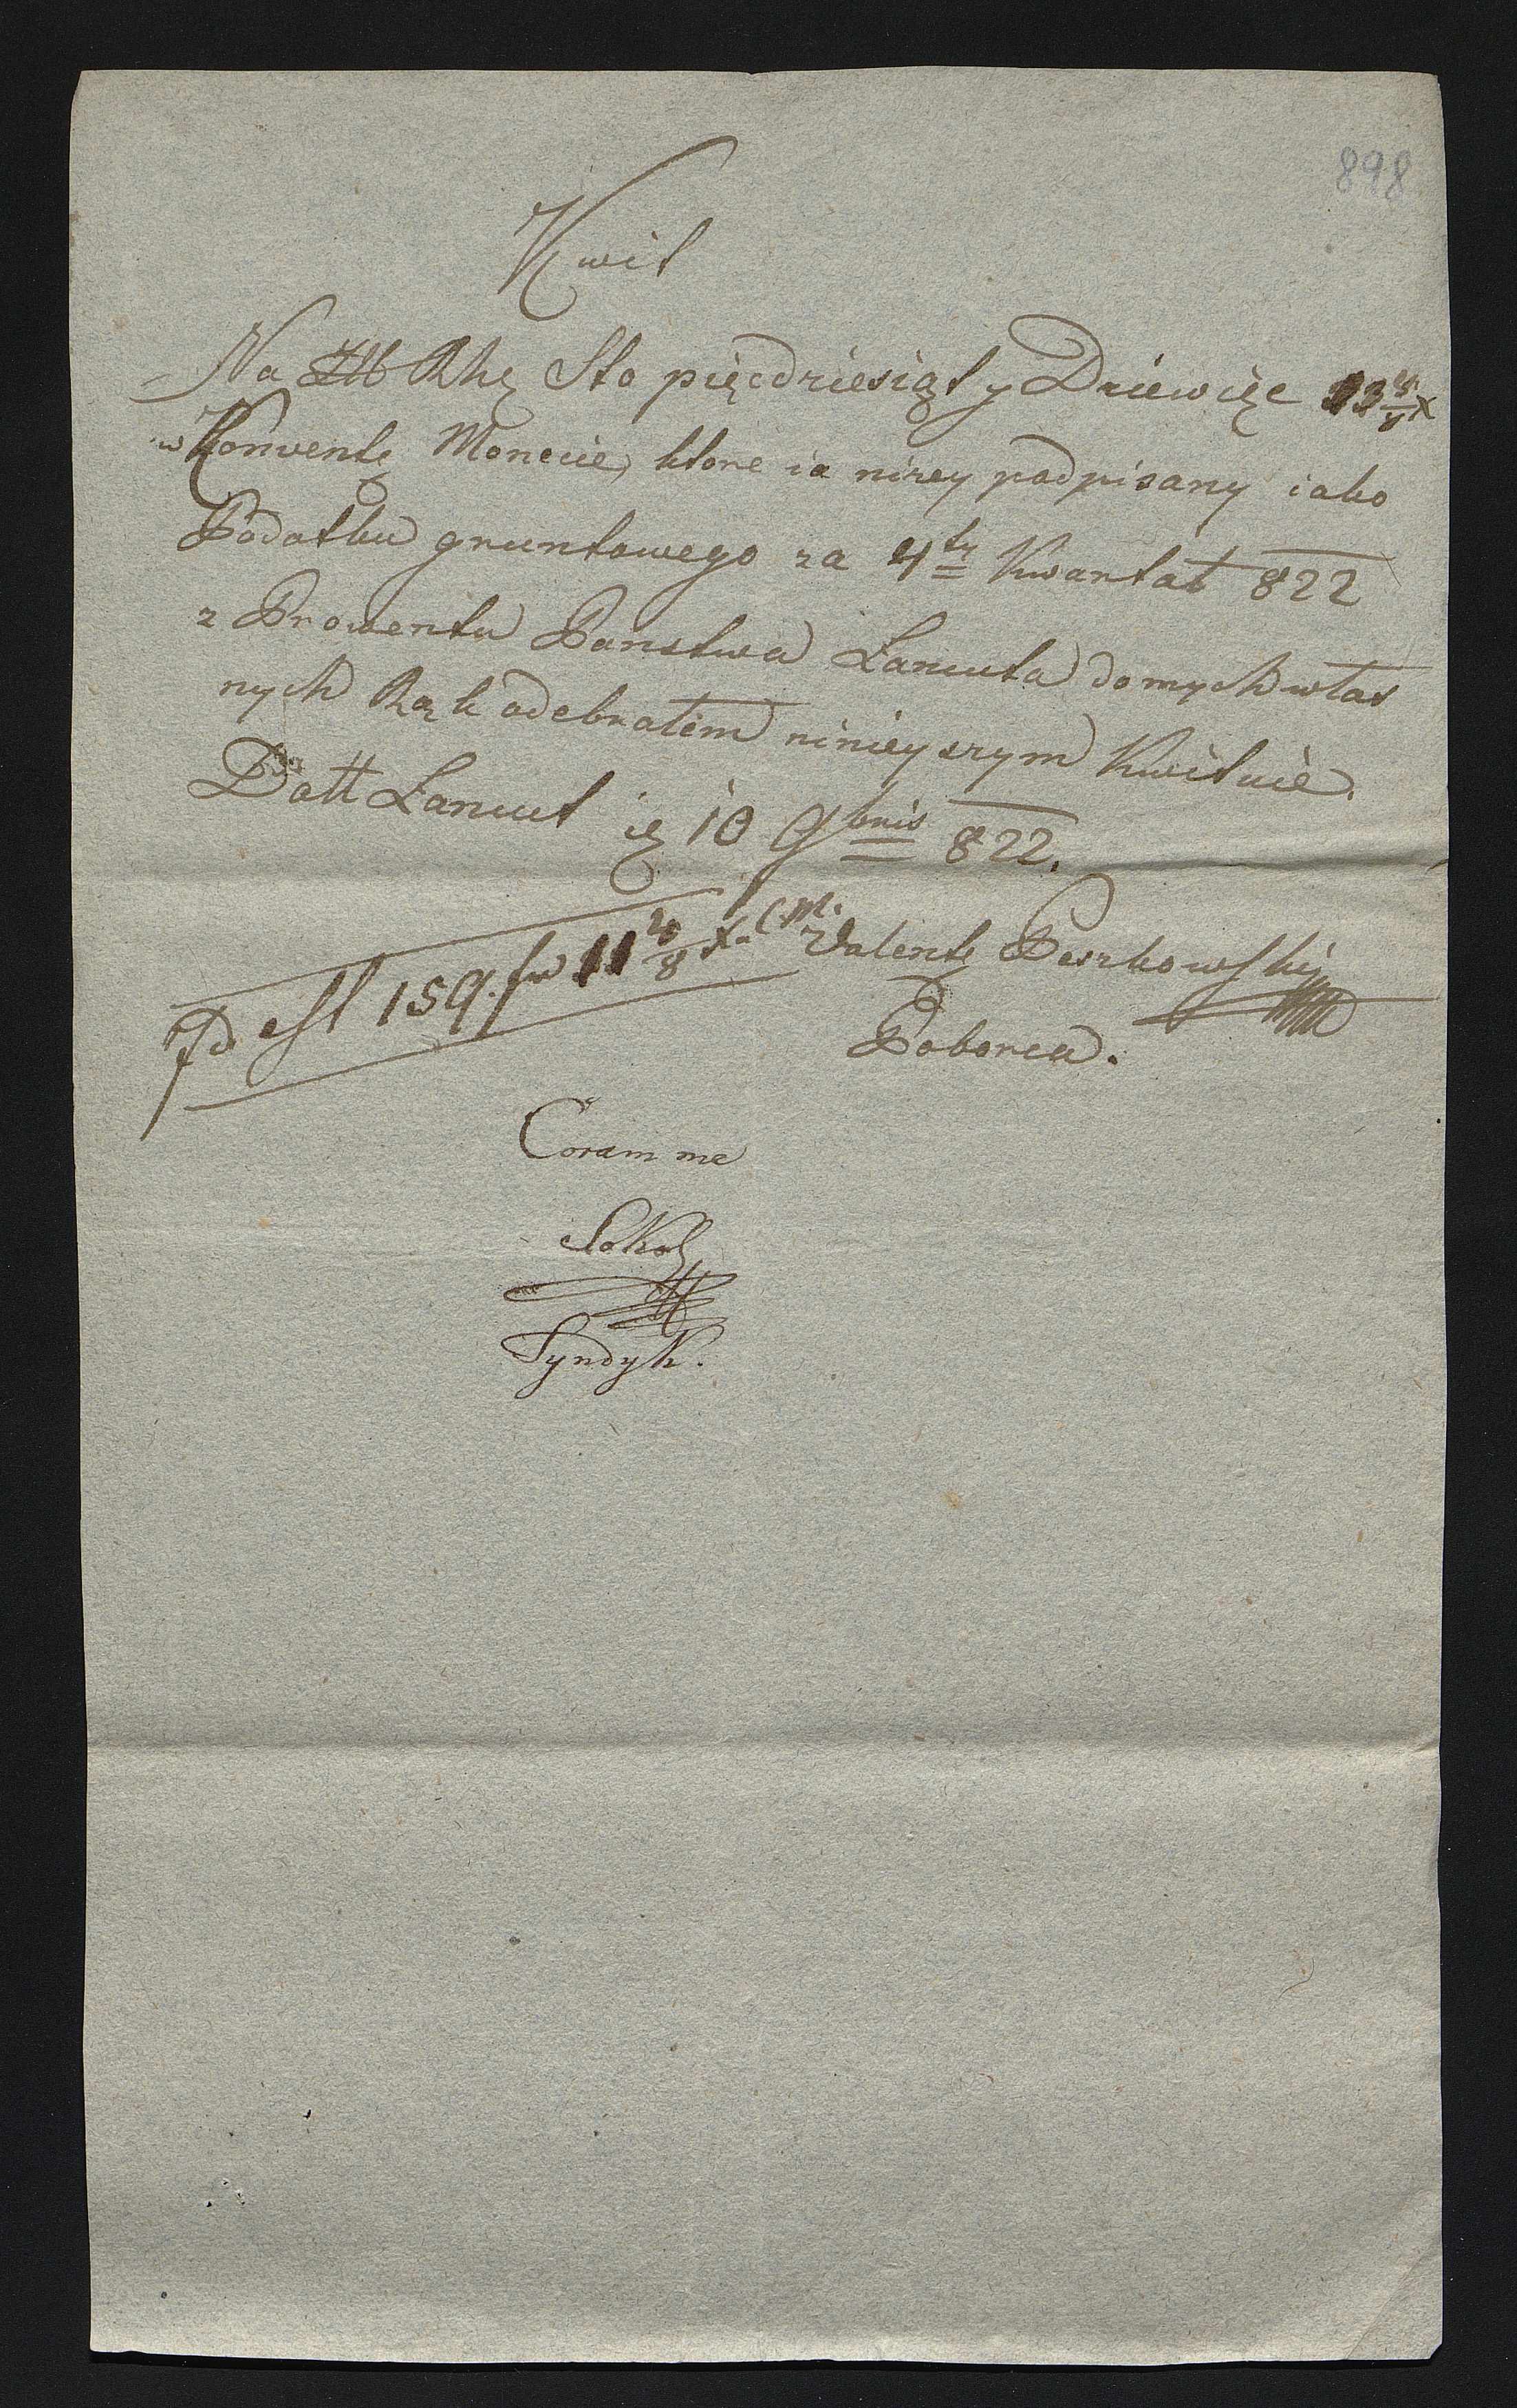 898
Kwit
Na Złt Rhę Sto pięcdziesiąt y Dziewięc 11 4/8 x
w Konwentę Monecie, ktore ia nizey podpisany iako
Podatku gruntowego za 4ty Kwartał 822
z Prowentu Panstwa Łancuta do mych włas
nych Rąk odebrałem ninieyszym Kwituie.
Datt Łancut ię 10 9bris 822.
Id est 159. fr 11 4/8 xr C.M.
Valentę Peszkowskiy
Poborca.
Coram me
Sokol
Syndyk.